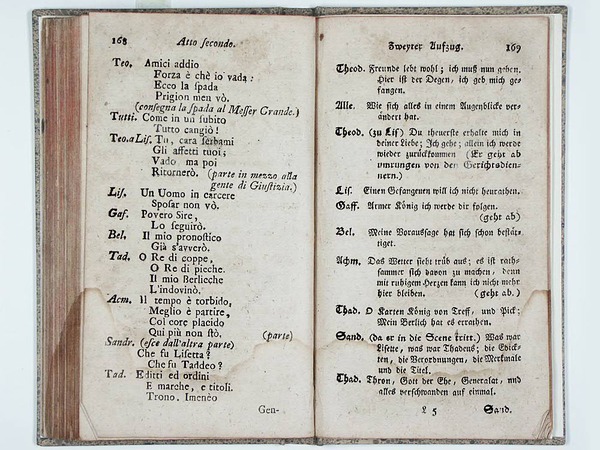 168 Atto secondo.
Teo. Amici addio
Forza è chè io vada:
Ecco la spada
Prigion men vò.
(consegna la spada al Messer Grande.)
Tutti. Come in un subito
Tutto cangiò!
Teo. a Lis. Tu, cara serbami
Gli affetti tuoi;
Vado ma poi
Ritornerò. (parte in mezzo alla
gente di Giustizia.)
Lis. Un Uomo in carcere
Sposar non vò.
Gaf. Povero Sire,
Lo seguirò.
Bel. Il mio pronostico
Già s'avverò.
Tad. O Re di coppe,
O Re di picche.
Il mio Berlicche
L'indovinò.
Acm. Il tempo è torbido,
Meglio è partire,
Col core placido
Qui più non stò. (parte)
Sandr. (esce dall'altra parte)
Che fu Lisetta?
Che fu Taddeo?
Tad. Editti ed ordini
E marche, e titoli.
Trono, Imenèo
Gen-
Zweyter Aufzug. 169
Theod. Freunde lebt wohl; ich muß nun gehen.
Hier ist der Degen, ich geb mich ge-
fangen.
Alle. Wie sich alles in einem Augenblicke ver-
ändert hat.
Theod. (zu Lis) Du theuerste erhalte mich in
deiner Liebe; Ich gehe; allein ich werde
wieder zurückkommen (Er geht ab
umrungen von den Gerichtsdien-
nern.)
Lis. Einen Gefangenen will ich nicht heurathen.
Gaff. Armer König ich werde dir folgen.
(geht ab)
Bel. Meine Voraussage hat sich schon bestät-
tiget.
Achm. Das Wetter sieht trüb aus; es ist rath-
sammer sich davon zu machen, denn
mit ruhigem Herzen kann ich nicht mehr
hier bleiben. (geht ab.)
Thad. O Karten König von Treff, und Pick;
Mein Berlich hat es errathen.
Sand. (da er in die Scene tritt.) Was war
Lisette, was war Thadeus; die Edick-
ten, die Verordnungen, die Merkmale
und die Titel.
Thad. Thron, Gott der Ehe, Generalat, und
alles verschwanden auf einmal.
L 5 Sand.